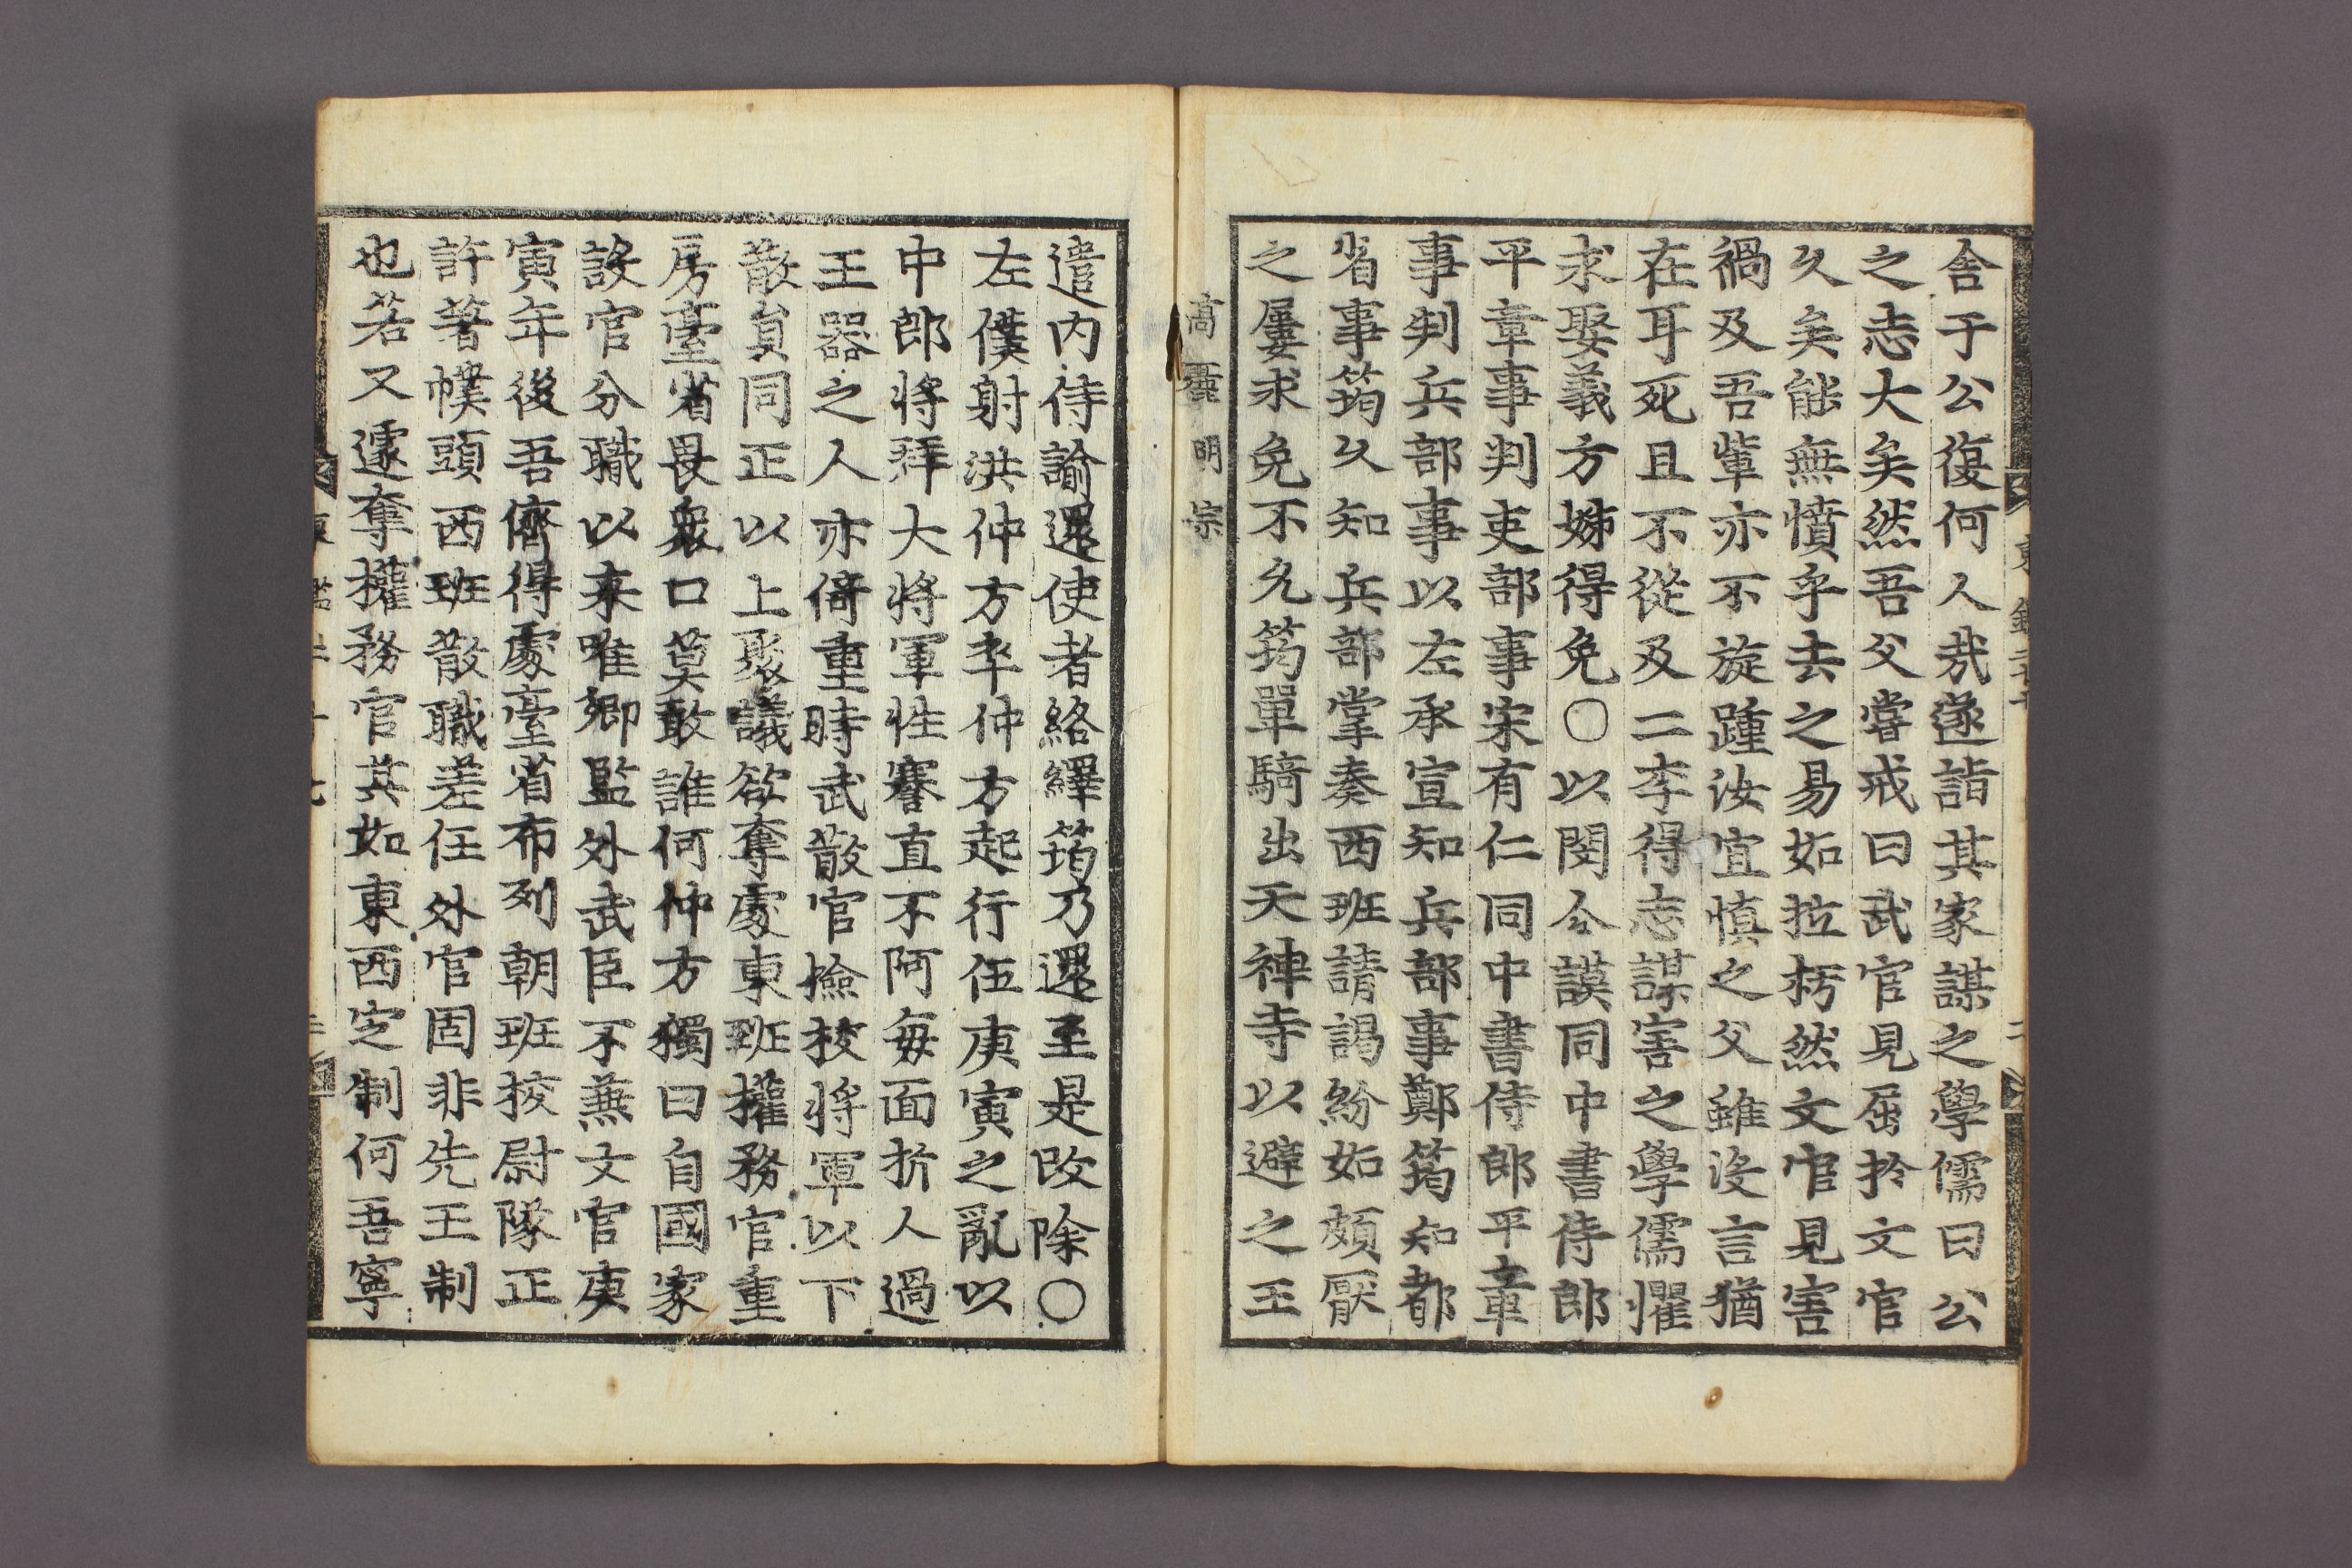 舍于公復何人哉遂詣其家謀之學儒曰公
之志大矣然吾父嘗戒曰武官見屈扵文官
久矣能無憤乎去之易如拉朽然文官見害
禍及吾輩亦不旋踵汝宜慎之父雖没言猶
在耳死且不從及二李得志謀害之學儒懼
求娶義方姊得免〇以閔令謨同中書侍郎
平章事判吏部事宋有仁同中書侍郎平章
事判兵部事以左承宣知兵部事鄭筠知都
省事筠久知兵部掌奏西班請謁紛如頗厭
之屢求免不允筠單騎出天神寺以避之王
高麗 明宗
遣内侍諭還使者絡繹筠乃還至是改除〇
左僕射洪仲方卒仲方起行伍庚寅之亂以
中郎將拜大將軍性謇直不阿每面折人過
王器之人亦倚重時武散官撿校將軍以下
散貟同正以上聚議欲奪處東班權務官重
房臺省畏衆口莫敢誰何仲方獨曰自國家
設官分職以来唯卿監外武臣不兼文官庚
寅年後吾儕得處臺省布列朝班挍尉隊正
許著幞頭西班散職差任外官固非先王制
也若又遽奪權務官其如東西定制何吾寧